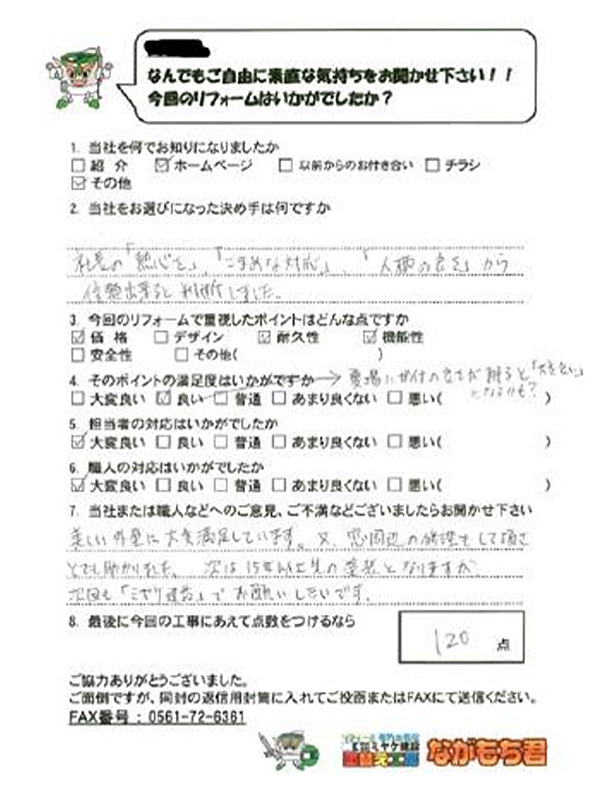 なんでもご自由に素直な気持ちをお聞かせ下さい！！
今回のリフォームはいかがでしたか？
1. 当社を何でお知りになりましたか
□ 紹 介 ☑ ホームページ □ 以前からのお付き合い □ チラシ
☑ その他
2. 当社をお選びになった決め手は何ですか
社長の「熱心さ」、「こまめな対応」、「人柄の良さ」から
信頼出来ると判断しました。
3. 今回のリフォームで重視したポイントはどんな点ですか
☑ 価 格 □ デザイン ☑ 耐久性 ☑ 機能性
□ 安全性 □ その他( )
4. そのポイントの満足度はいかがですか
□ 大変良い ☑ 良い □ 普通 □ あまり良くない □ 悪い( )
5. 担当者の対応はいかがでしたか
☑ 大変良い □ 良い □ 普通 □ あまり良くない □ 悪い( )
6. 職人の対応はいかがでしたか
☑ 大変良い □ 良い □ 普通 □ あまり良くない □ 悪い( )
7. 当社または職人などへのご意見、ご不満などございましたらお聞かせ下さい
美しい外壁に大変満足しています。又、窓周辺の修理をして頂き
とても助かりました。次は15年以上先の塗装となりますが
次回も「ミヤケ建設」でお願いしたいです。
8. 最後に今回の工事にあえて点数をつけるなら
120 点
ご協力ありがとうございました。
ご面倒ですが、同封の返信用封筒に入れてご投函またはFAXにて送信ください。
FAX番号：0561-72-6361
ミヤケ建設
塗替え工房
ながもち君